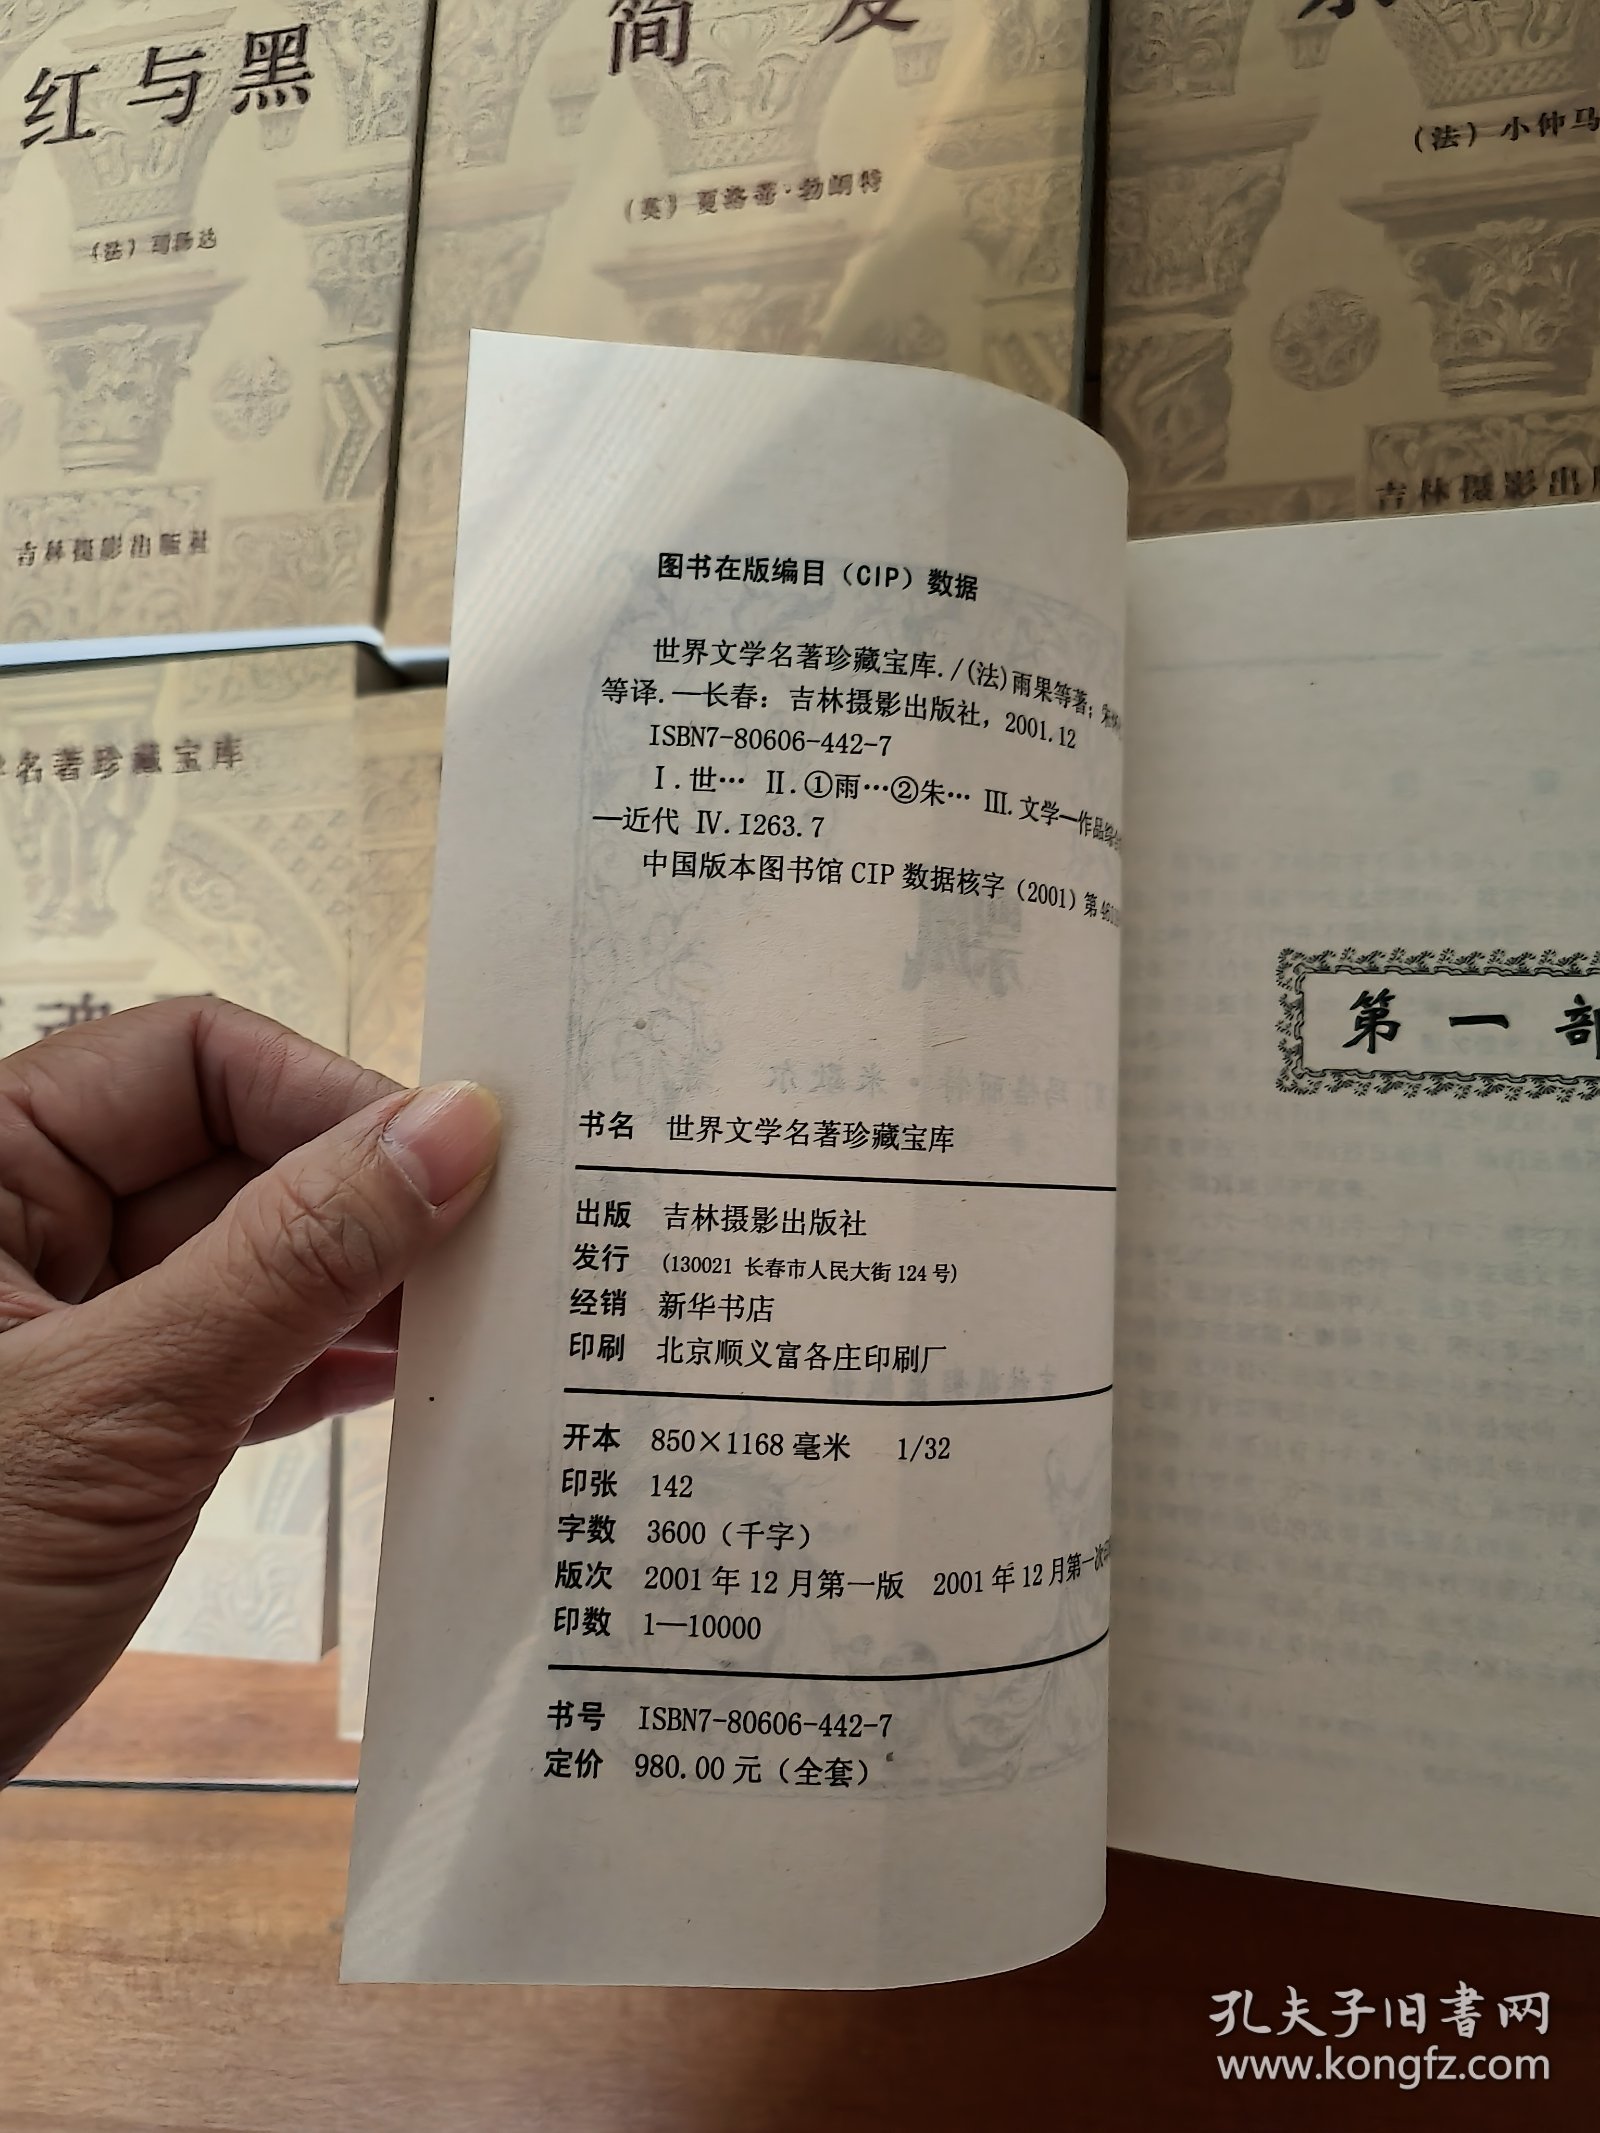 红与黑
(法)司汤达
吉林摄影出版社
简
(英)夏洛蒂·勃朗特
(法)小仲马
吉林摄影出版
名著珍藏宝库
图书在版编目(CIP)数据
世界文学名著珍藏宝库./(法)雨果等著;
等译.—长春:吉林摄影出版社,2001.12
ISBN7-80606-442-7
Ⅰ.世… Ⅱ.①雨…②朱… Ⅲ.文学—作品综
—近代 Ⅳ.I263.7
中国版本图书馆CIP数据核字(2001)第
书名 世界文学名著珍藏宝库
出版 吉林摄影出版社
发行 (130021 长春市人民大街124号)
经销 新华书店
印刷 北京顺义富各庄印刷厂
开本 850×1168毫米 1/32
印张 142
字数 3600(千字)
版次 2001年12月第一版 2001年12月第一次
印数 1—10000
书号 ISBN7-80606-442-7
定价 980.00元(全套)
第一部
孔夫子旧书网
www.kongfz.com